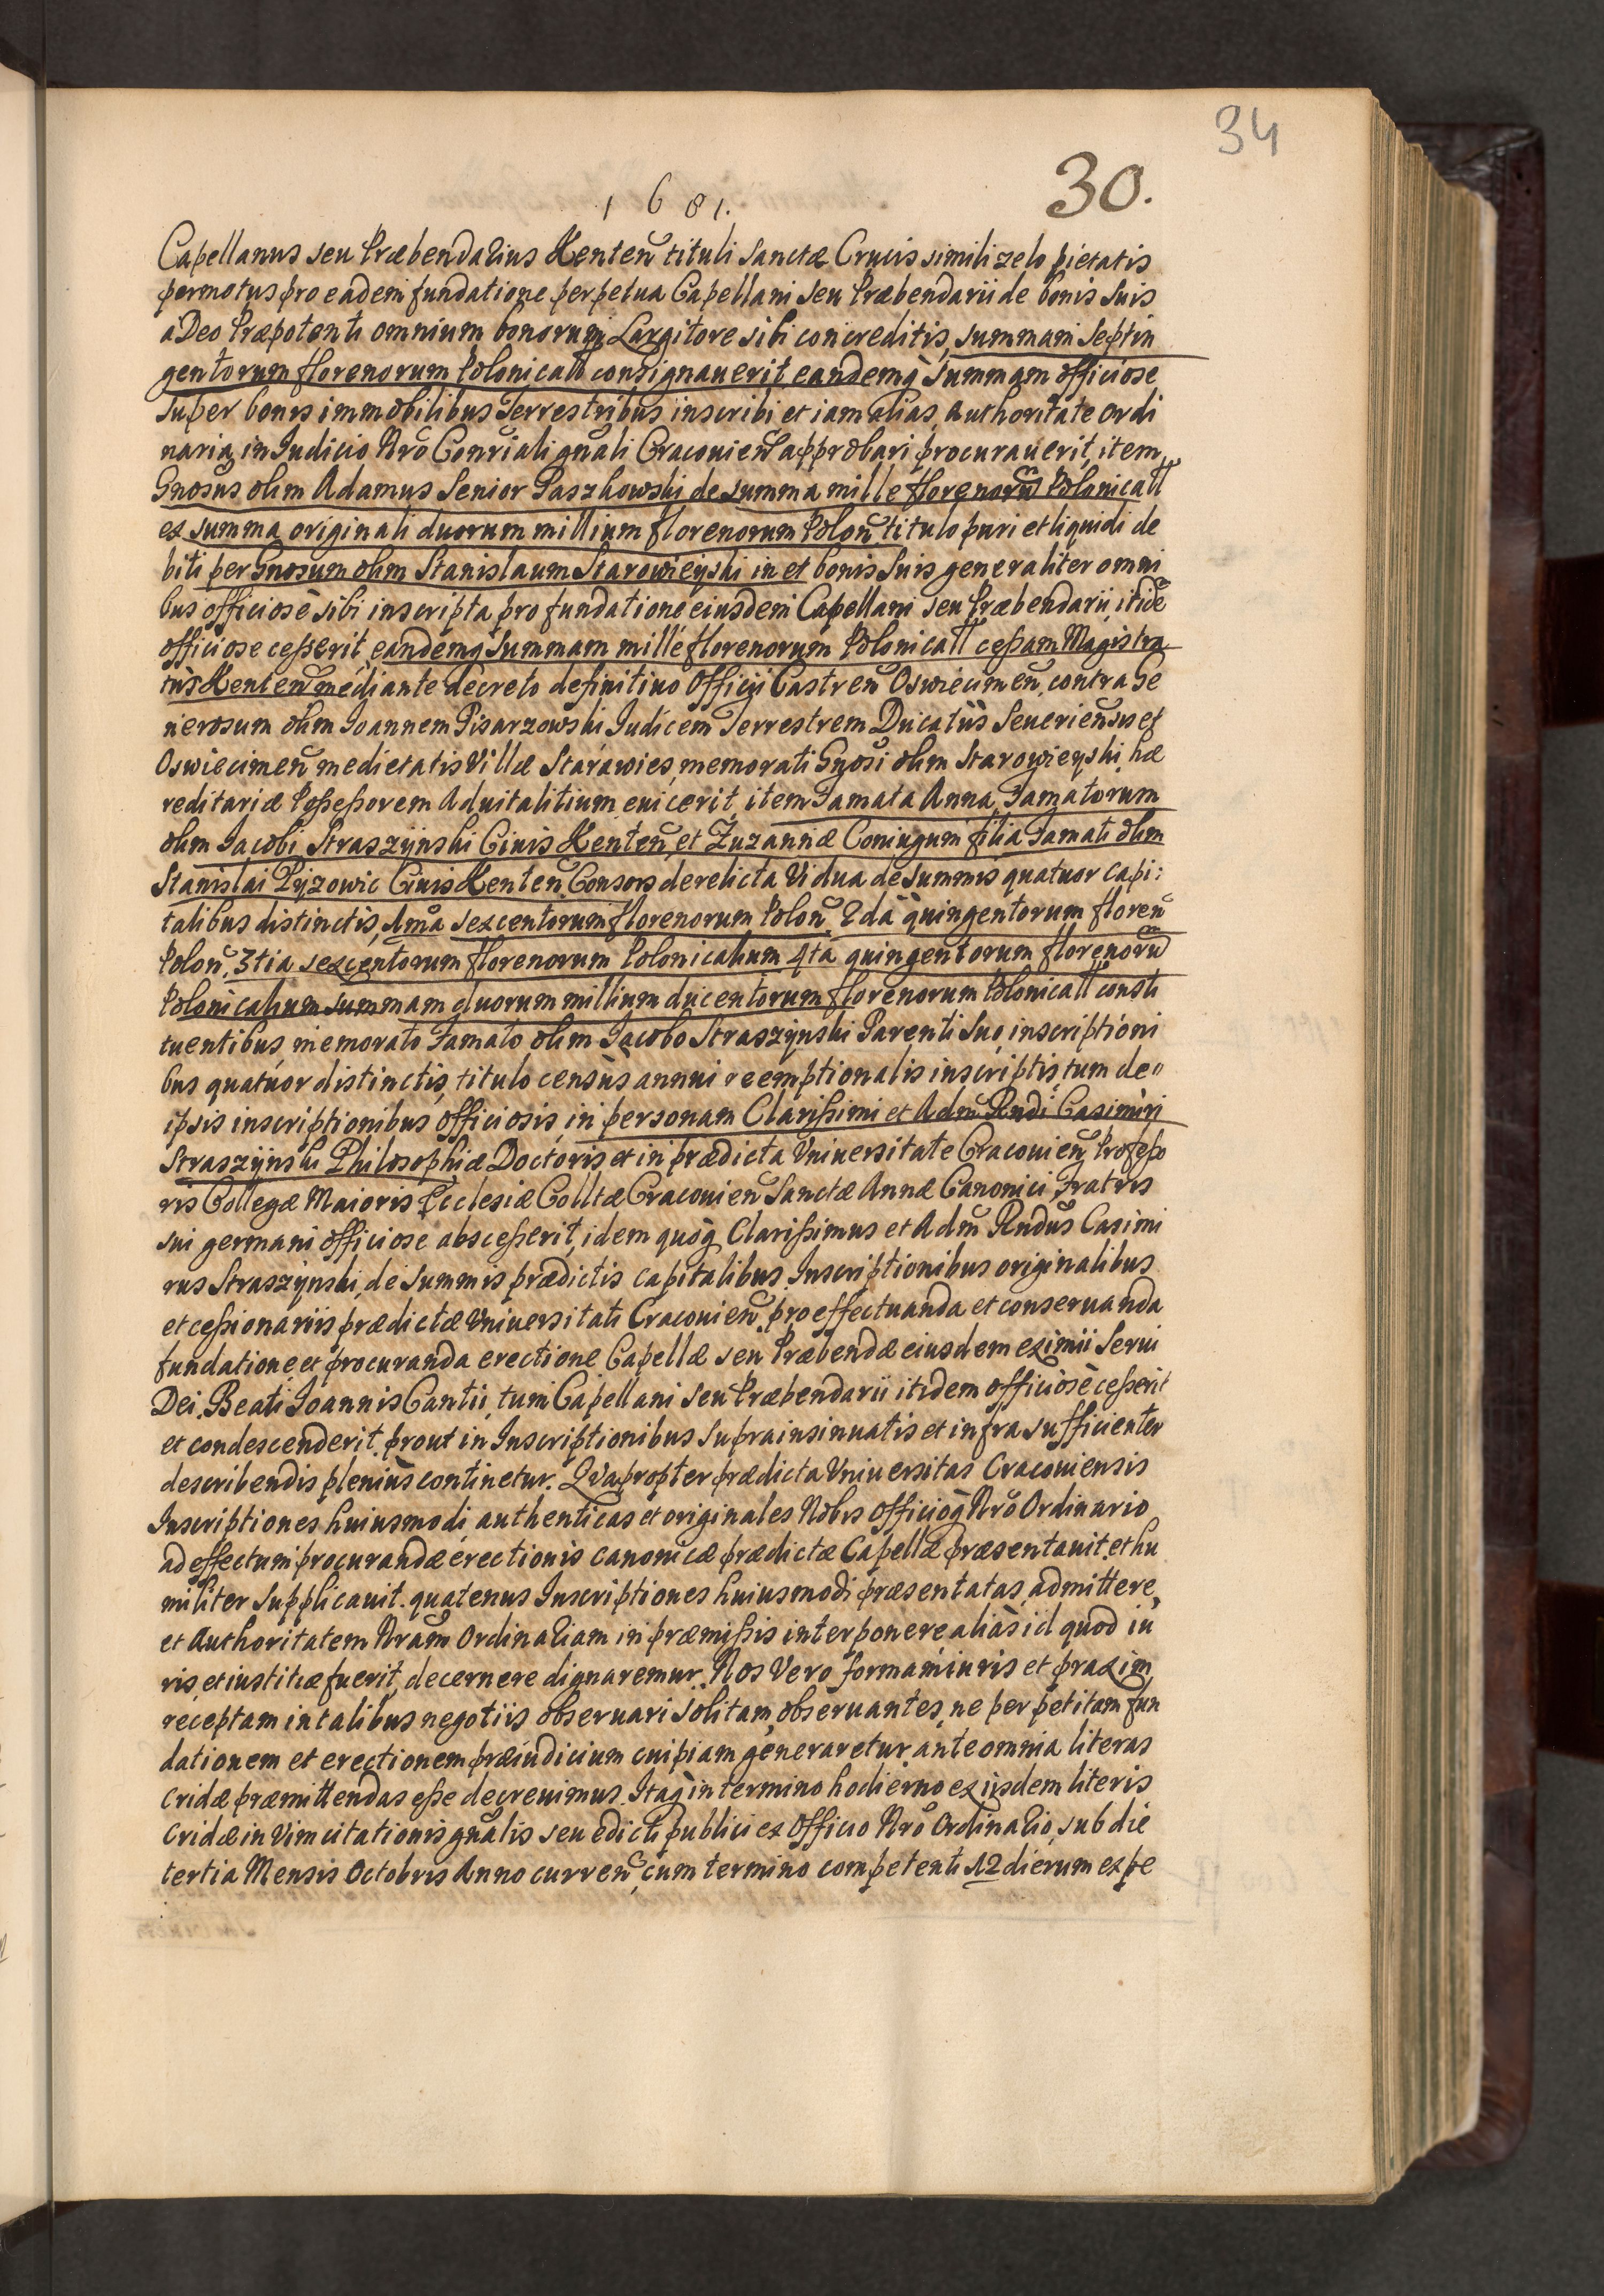 34
30.
1681.
Capellanus seu Præbendarius Kenteñ tituli Sanctæ Crucis simili zelo pietatis
permotus pro eadem fundatione perpetua Capellani seu Præbendarii de bonis suis
à Deo Præpotenti omnium bonorum Largitore sibi concreditis, summam Septin
gentorum florenorum Polonicall consignauerit eandemq̀ summam officiose
super bonis immobilibus Terrestribus inscribi, et iam alias, Authoritate ordi
naria, in Iudicio Nr̃o Consriali gñali Cracouieñ approbari procurauerit, item
Gnosus olim Adamus Senior Paszkowski de summa mille florenorũ Polonicall
ex summa originali duorum millium florenorum Poloñ, titulo puri et liquidi de
biti per Gnosum olim Stanislaum Starowieyski in et bonis suis generaliter omni
bus officiosè sibi inscripta pro fundatione eiusdem Capellani seu Præbendarii, itidẽ
officiose cesserit, eandemq̀ summam mille florenorum Polonicall cessam Magistra
tus Kenteñ mediante decreto definitiuo Officii Castreñ Oswiecimeñ, contra Ge
nerosum olim Ioannem Pisarzowski Iudicem Terrestrem Ducatûs Seueriensis et
Oswiecimeñ medietatis Villæ Starawies, memorati Gnosi olim Starowieyski hæ
reditariæ Possessorem Aduitalitium euicerit, item Famata Anna, Famatorum
olim Jacobi Straszÿnski Ciuis Kenteñ, et Zuzannæ Coniugum filia Famati olim
Stanislai Pÿzowic Ciuis Kenteñ Consors derelicta Vidua de summis quatuor capi:
talibus distinctis, 1mâ sexcentorum florenorum Poloñ, 2dâ quingentorum floreñ
Poloñ, 3tia sexcentorum florenorum Polonicalium 4tâ quingentorum florenorũ
Polonicalium summam duorum millium ducentorum florenorum Polonicall consti
tuentibus memorato Famato olim Jacobo Straszynski Parenti suo, inscriptioni
bus quatuor distinctis, titulo censûs annui reemptionalis inscriptis, tum de
ipsis inscriptionibus officiosis, in personam Clarissimi et Adm̃ Rñdi Casimiri
Straszÿnski Philosophiæ Doctoris, et in prædicta Vniuersitate Cracouieñ Professo
ris Collegæ Maioris Ecclesiæ Colltæ Cracouieñ Sanctæ Annæ Canonici, Fratris
sui germani officiose abscesserit, idem quoq̀ Clarissimus et Adm̃ Rñdus Casimi
rus Straszÿnski, de summis prædictis capitalibus Inscriptionibus originalibus
et cessionariis prædictæ Vniuersitati Cracouieñ, pro effectuanda et conseruanda
fundatione, et procuranda erectione Capellæ seu Præbendæ eiusdem eximii Serui
Dei, Beati Joannis Cantii, tum Capellani seu Præbendarii itidem officiosè cesserit
et condescenderit, prout in Inscriptionibus supra insinuatis et infra sufficienter
describendis pleniùs continetur. Qvapropter prædicta Vniuersitas Cracouiensis
Inscriptiones huiusmodi authenticas et originales Nobis Officioq̀ Nr̃o Ordinario,
ad effectum procurandæ erectionis canonicæ prædictæ Capellæ præsentauit, et hu
militer supplicauit. quatenus Inscriptiones huiusmodi præsentatas, admittere,
et Authoritatem Nr̃am Ordinariam in præmissis interponere, aliàs id quod iu
ris, et iustitiæ fuerit, decernere dignaremur. Nos Vero formam iuris et praxim
receptam in talibus negotiis obseruari solitam, obseruantes, ne per petitam fun
dationem et erectionem præiudicium cuipiam generaretur, ante omnia literas
cridæ præmittendas esse decreuimus. Itaq̀ in termino hodierno ex ijsdem literis
cridæ in Vim citationis gñalis seu edicti publici ex Officio Nr̃o Ordinario, sub die
tertia Mensis Octobris Anno curreñ, cum termino competenti 12 dierum expe